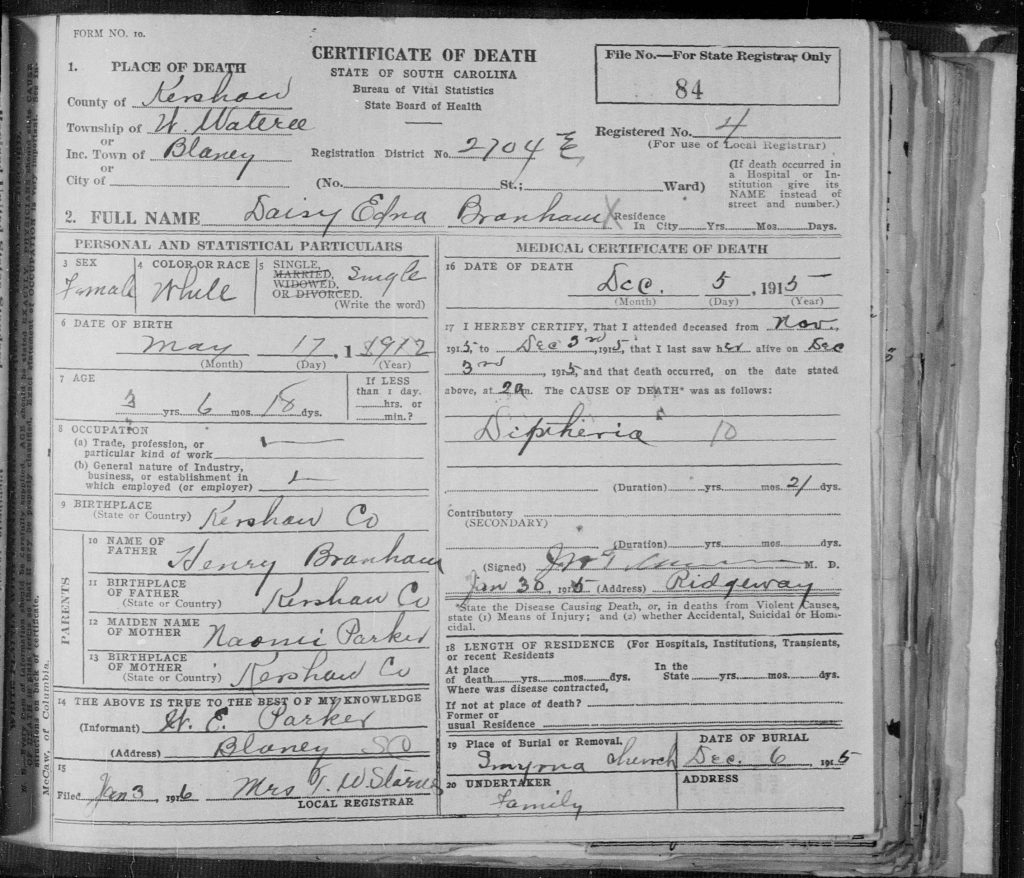 FORM NO. 10.
CERTIFICATE OF DEATH
STATE OF SOUTH CAROLINA
Bureau of Vital Statistics
State Board of Health
File No.—For State Registrar Only
84
1. PLACE OF DEATH
County of Kershaw
Township of W. Wateree
or
Inc. Town of Blaney
or
City of
Registration District No. 2704 E
Registered No. 4
(For use of Local Registrar)
(No. St.; Ward)
(If death occurred in
a Hospital or In-
stitution give its
NAME instead of
street and number.)
2. FULL NAME Daisy Edna Branham X Residence
In City Yrs. Mos. Days.
PERSONAL AND STATISTICAL PARTICULARS
3 SEX
Female
4 COLOR OR RACE
White
5 SINGLE,
MARRIED,
WIDOWED,
OR DIVORCED.
(Write the word)
Single
6 DATE OF BIRTH
May 17, 1 1912
(Month) (Day) (Year)
7 AGE
3 yrs. 6 mos. 18 dys.
If LESS
than 1 day.
hrs. or
min.?
8 OCCUPATION
(a) Trade, profession, or
particular kind of work
(b) General nature of Industry,
business, or establishment in
which employed (or employer)
9 BIRTHPLACE
(State or Country) Kershaw Co
PARENTS
10 NAME OF
FATHER
Henry Branham
11 BIRTHPLACE
OF FATHER
(State or Country) Kershaw Co
12 MAIDEN NAME
OF MOTHER Naomi Parker
13 BIRTHPLACE
OF MOTHER
(State or Country) Kershaw Co
14 THE ABOVE IS TRUE TO THE BEST OF MY KNOWLEDGE
(Informant) W. E. Parker
(Address) Blaney SC
15
Filed Jan 3, 1916 Mrs T. W. Starnes
LOCAL REGISTRAR
MEDICAL CERTIFICATE OF DEATH
16 DATE OF DEATH
Dec. 5, 1915
(Month) (Day) (Year)
17 I HEREBY CERTIFY, That I attended deceased from Nov.
1915, to Dec 3rd, 1915, that I last saw her alive on Dec
3rd, 1915, and that death occurred, on the date stated
above, at 2a m. The CAUSE OF DEATH* was as follows:
Diptheria 10
(Duration) yrs. mos. 21 dys.
Contributory
(SECONDARY)
(Duration) yrs. mos. dys.
(Signed) M. D.
Jan 30, 1915 (Address) Ridgeway
*State the Disease Causing Death, or, in deaths from Violent Causes,
state (1) Means of Injury; and (2) whether Accidental, Suicidal or Homi-
cidal.
18 LENGTH OF RESIDENCE (For Hospitals, Institutions, Transients,
or recent Residents
At place In the
of death yrs. mos. dys. State yrs. mos. dys.
Where was disease contracted,
If not at place of death?
Former or
usual Residence
19 Place of Burial or Removal,
Smyrna Church
DATE OF BURIAL
Dec. 6, 1915
20 UNDERTAKER
Family
ADDRESS
McCaw, of Columbia.